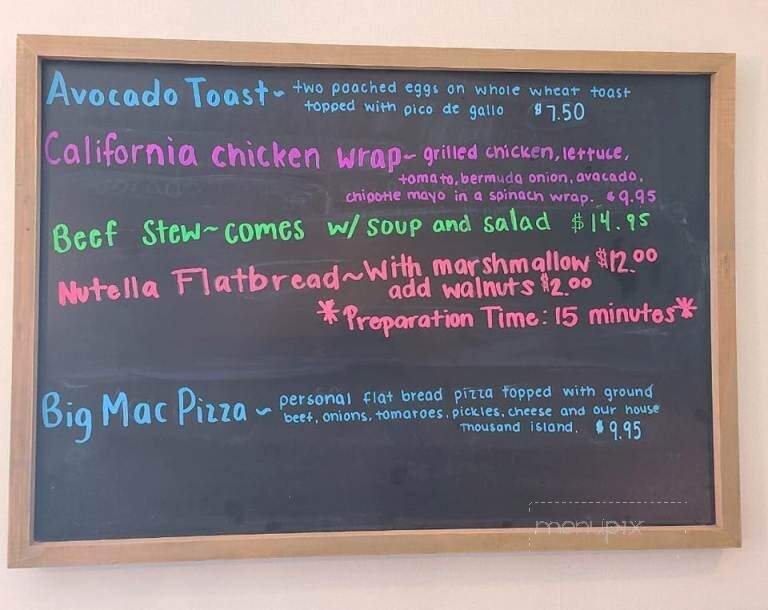 Avocado Toast~ two poached eggs on whole wheat toast
topped with pico de gallo $7.50
California chicken wrap~ grilled chicken, lettuce,
tomato, bermuda onion, avacado,
chipotle mayo in a spinach wrap. $9.95
Beef Stew~ comes w/ soup and salad $14.95
Nutella Flatbread~ With marshmallow $12.00
add walnuts $2.00
*Preparation Time: 15 minutes*
Big Mac Pizza ~ personal flat bread pizza topped with ground
beef, onions, tomatoes, pickles, cheese and our house
thousand island. $9.95
menupix